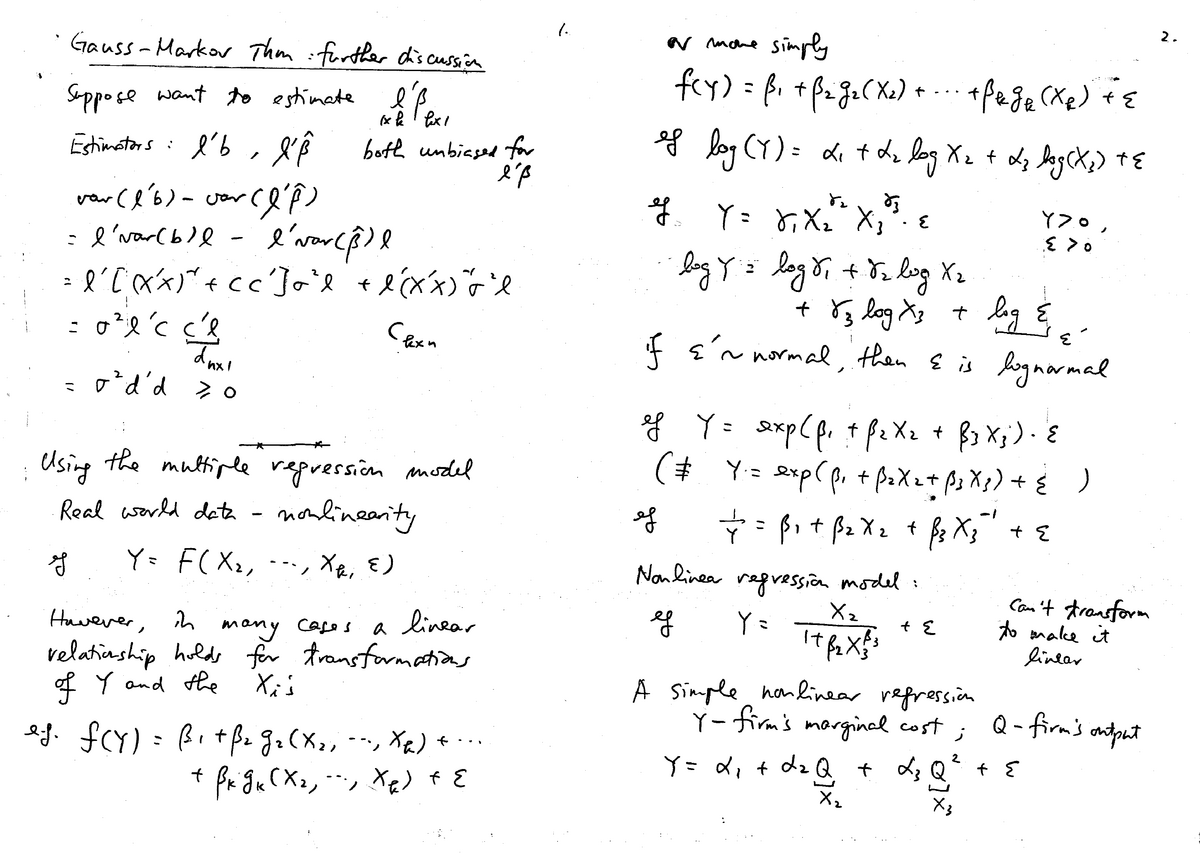 1.
Gauss-Markov Thm : further discussion
Suppose want to estimate l'β
1xk kx1
Estimators : l'b , l'β̂ both unbiased for
l'β
var(l'b) - var(l'β̂)
= l'var(b)l - l'var(β̂)l
= l'[(X'X)⁻¹ + CC']σ²l + l'(X'X)⁻¹σ²l
= σ²l'C C'l C kxn
d nx1
= σ²d'd ≥ 0
Using the multiple regression model
Real world data - nonlinearity
eg Y = F(X₂, ---, Xk, ε)
However, in many cases a linear
relationship holds for transformations
of Y and the Xi's
eg. f(Y) = β₁ + β₂g₂(X₂, ---, Xk) + ...
+ βkgk(X₂, ---, Xk) + ε
2.
or more simply
f(Y) = β₁ + β₂g₂(X₂) + ... + βkgk(Xk) + ε
eg log(Y) = α₁ + α₂ log X₂ + α₃ log(X₃) + ε
eg. Y = γ₁X₂^γ₂ X₃^γ₃ · ε Y>0,
ε>0
log Y = log γ₁ + γ₂ log X₂
+ γ₃ log X₃ + log ε
ε'
if ε' ~ normal, then ε is lognormal
eg Y = exp(β₁ + β₂X₂ + β₃X₃) · ε
(≠ Y = exp(β₁ + β₂X₂ + β₃X₃) + ε )
eg 1/Y = β₁ + β₂X₂ + β₃X₃⁻¹ + ε
Nonlinear regression model :
eg Y = X₂ / (1 + β₂X₃^β₃) + ε Can't transform
to make it
linear
A simple nonlinear regression
Y - firm's marginal cost ; Q - firm's output
Y = α₁ + α₂Q + α₃Q² + ε
X₂ X₃